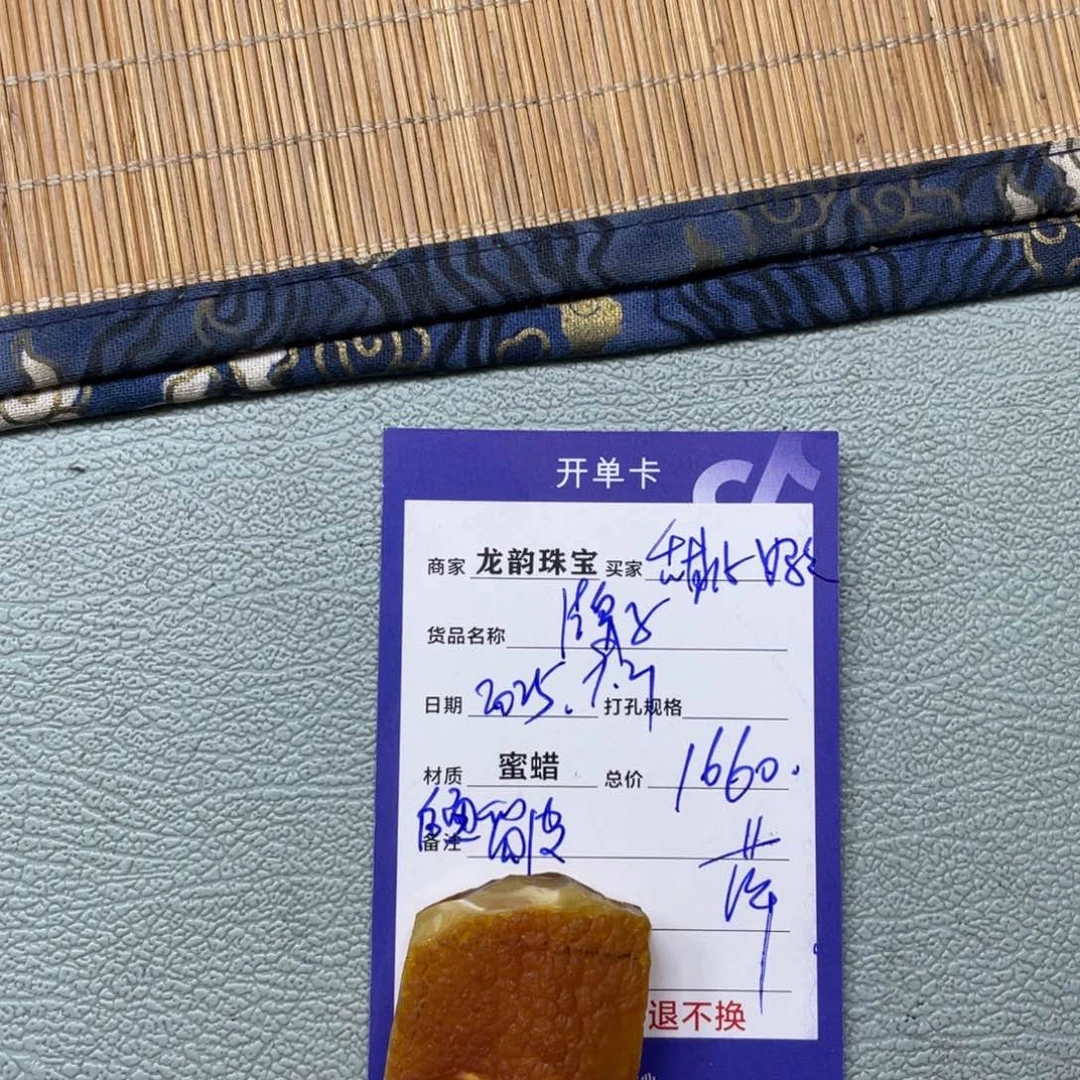 开单卡
商家 龙韵珠宝 买家
货品名称 牌子
日期 2025. 打孔规格
材质 蜜蜡 总价 1660.
备注 留皮
萍
退不换